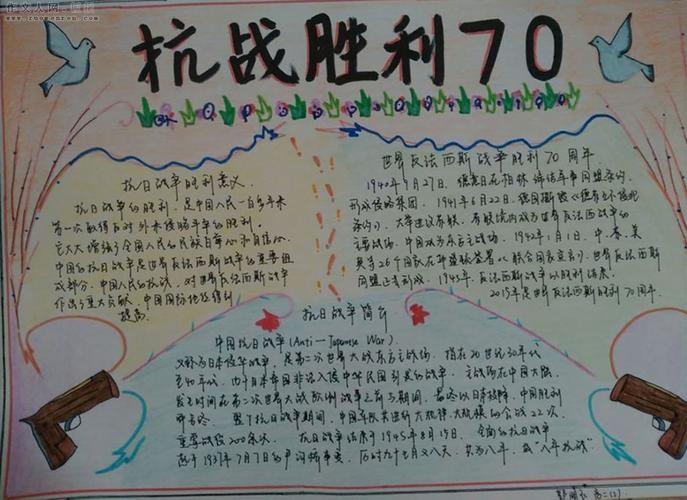 作文人网·画报
www.zuowenren.com
抗战胜利70
抗日战争胜利意义
抗日战争的胜利,是中国人民一百多年来
第一次取得反对外来侵略斗争的胜利。
它大大增强了全国人民的民族自尊心和自信心。
中国的抗日战争是世界反法西斯战争的重要组
成部分,中国人民的抗战,对世界反法西斯战争
作出了重大贡献,中国国际地位得到
提高。
世界反法西斯战争胜利70周年
1940年9月27日,德意日在柏林缔结军事同盟条约,
形成侵略集团。1941年6月22日,德国撕毁《德苏互不侵犯
条约》,大举进攻苏联,
主要战场,中国成为东方主战场。1942年1月1日,中、苏、美
英等26个国家在华盛顿签署《联合国家宣言》,世界反法西斯
同盟正式形成。1945年,反法西斯战争以胜利结束。
2015年是世界反法西斯胜利70周年。
抗日战争简介
中国抗日战争(Anti-Japanese War),
又称为日本侵华战争,是第二次世界大战东方主战场,指在20世纪30年代
至40年代,由于日本帝国非法入侵中华民国引氣的战争。主战场在中国大陆,
发生时间在第二次世界大战欧洲战争之前与期间,最终以日本投降,中国胜利
而告终。整个抗日战争期间,中国军队共进行大规模的会战22次,
重要战役200余次。抗日战争结束于1945年8月15日,全面的抗日战争
起于1937年7月7日的卢沟桥事变,历时九十七又八天,共为八年,或"八年抗战"。
高二(2)